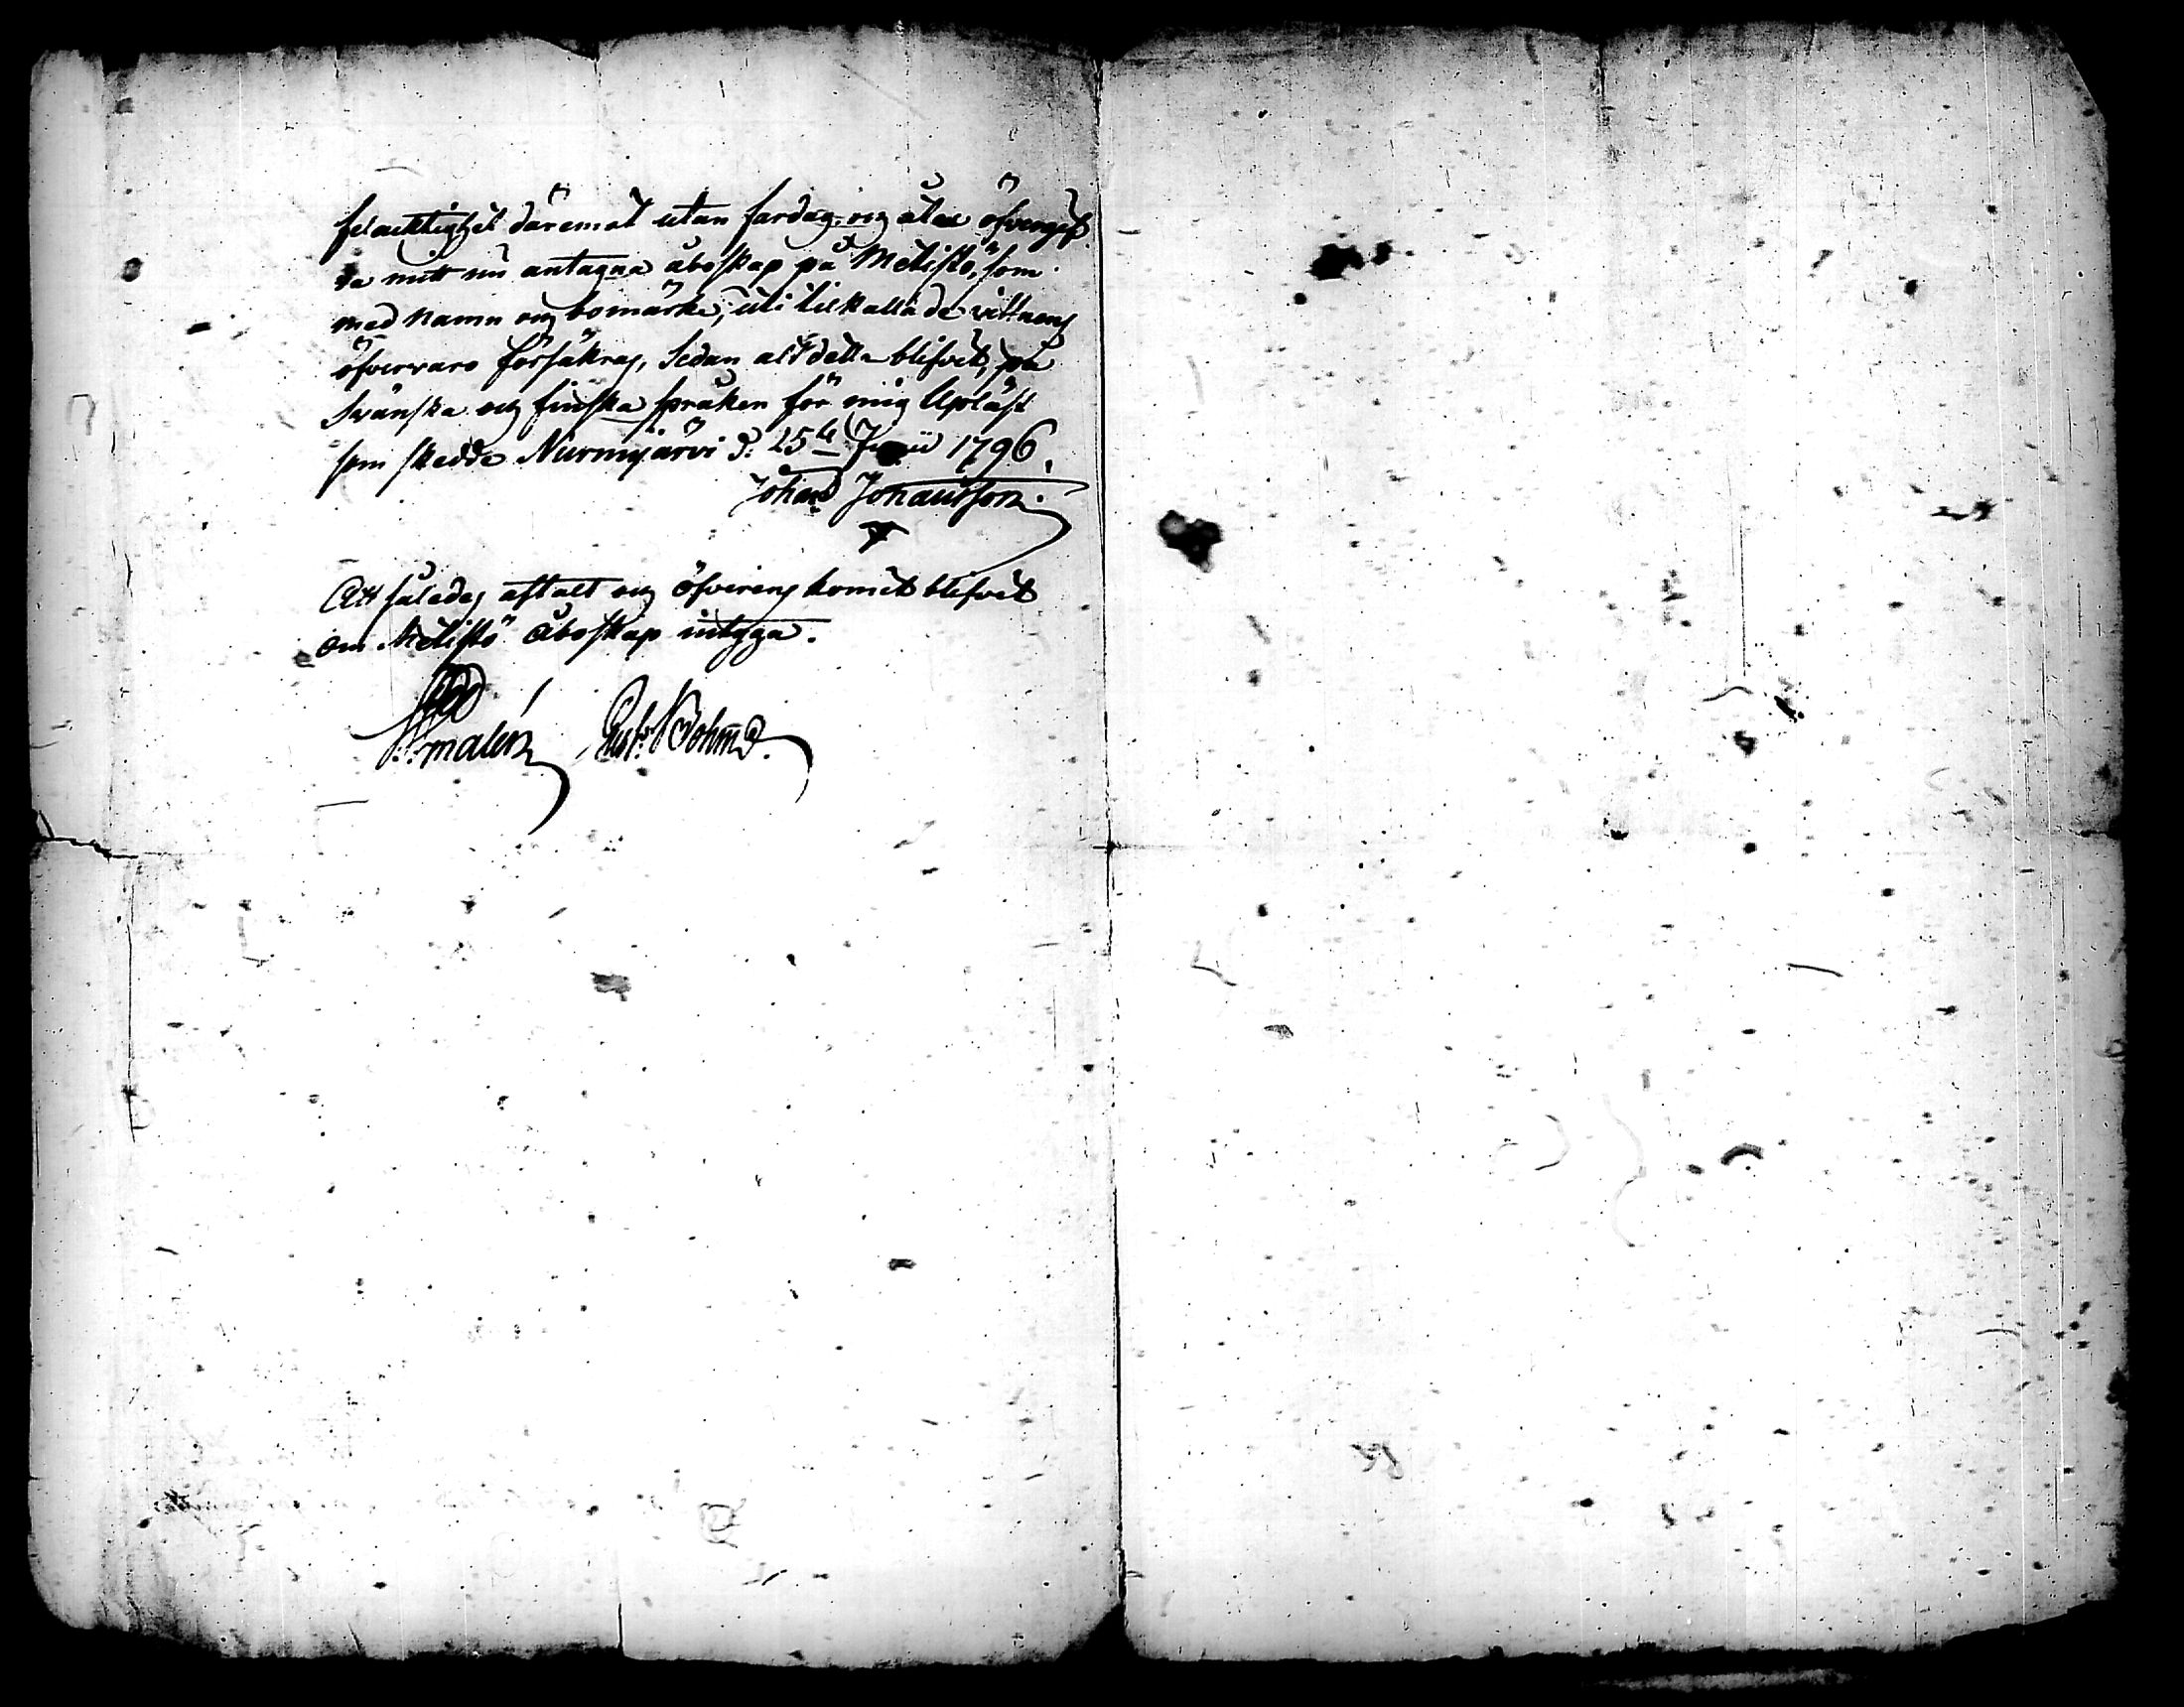 felacktighet däremot utan fardag och åtal öfvergif
va mitt nu antagna åboskap på Metistö, som
med namn och bomärke, uti tilkallade vittnens
öfvervaro försäkras, Sedan alt detta blifvit, på
Svänska och finska språken för mig Upläst
som skedde Nurmijärvi d: 25te 1796,
Johan Johansson.
Att således aftalt och öfverens komit blifvit
om Metistö åboskap intyga.
Malén Gust: Bohm